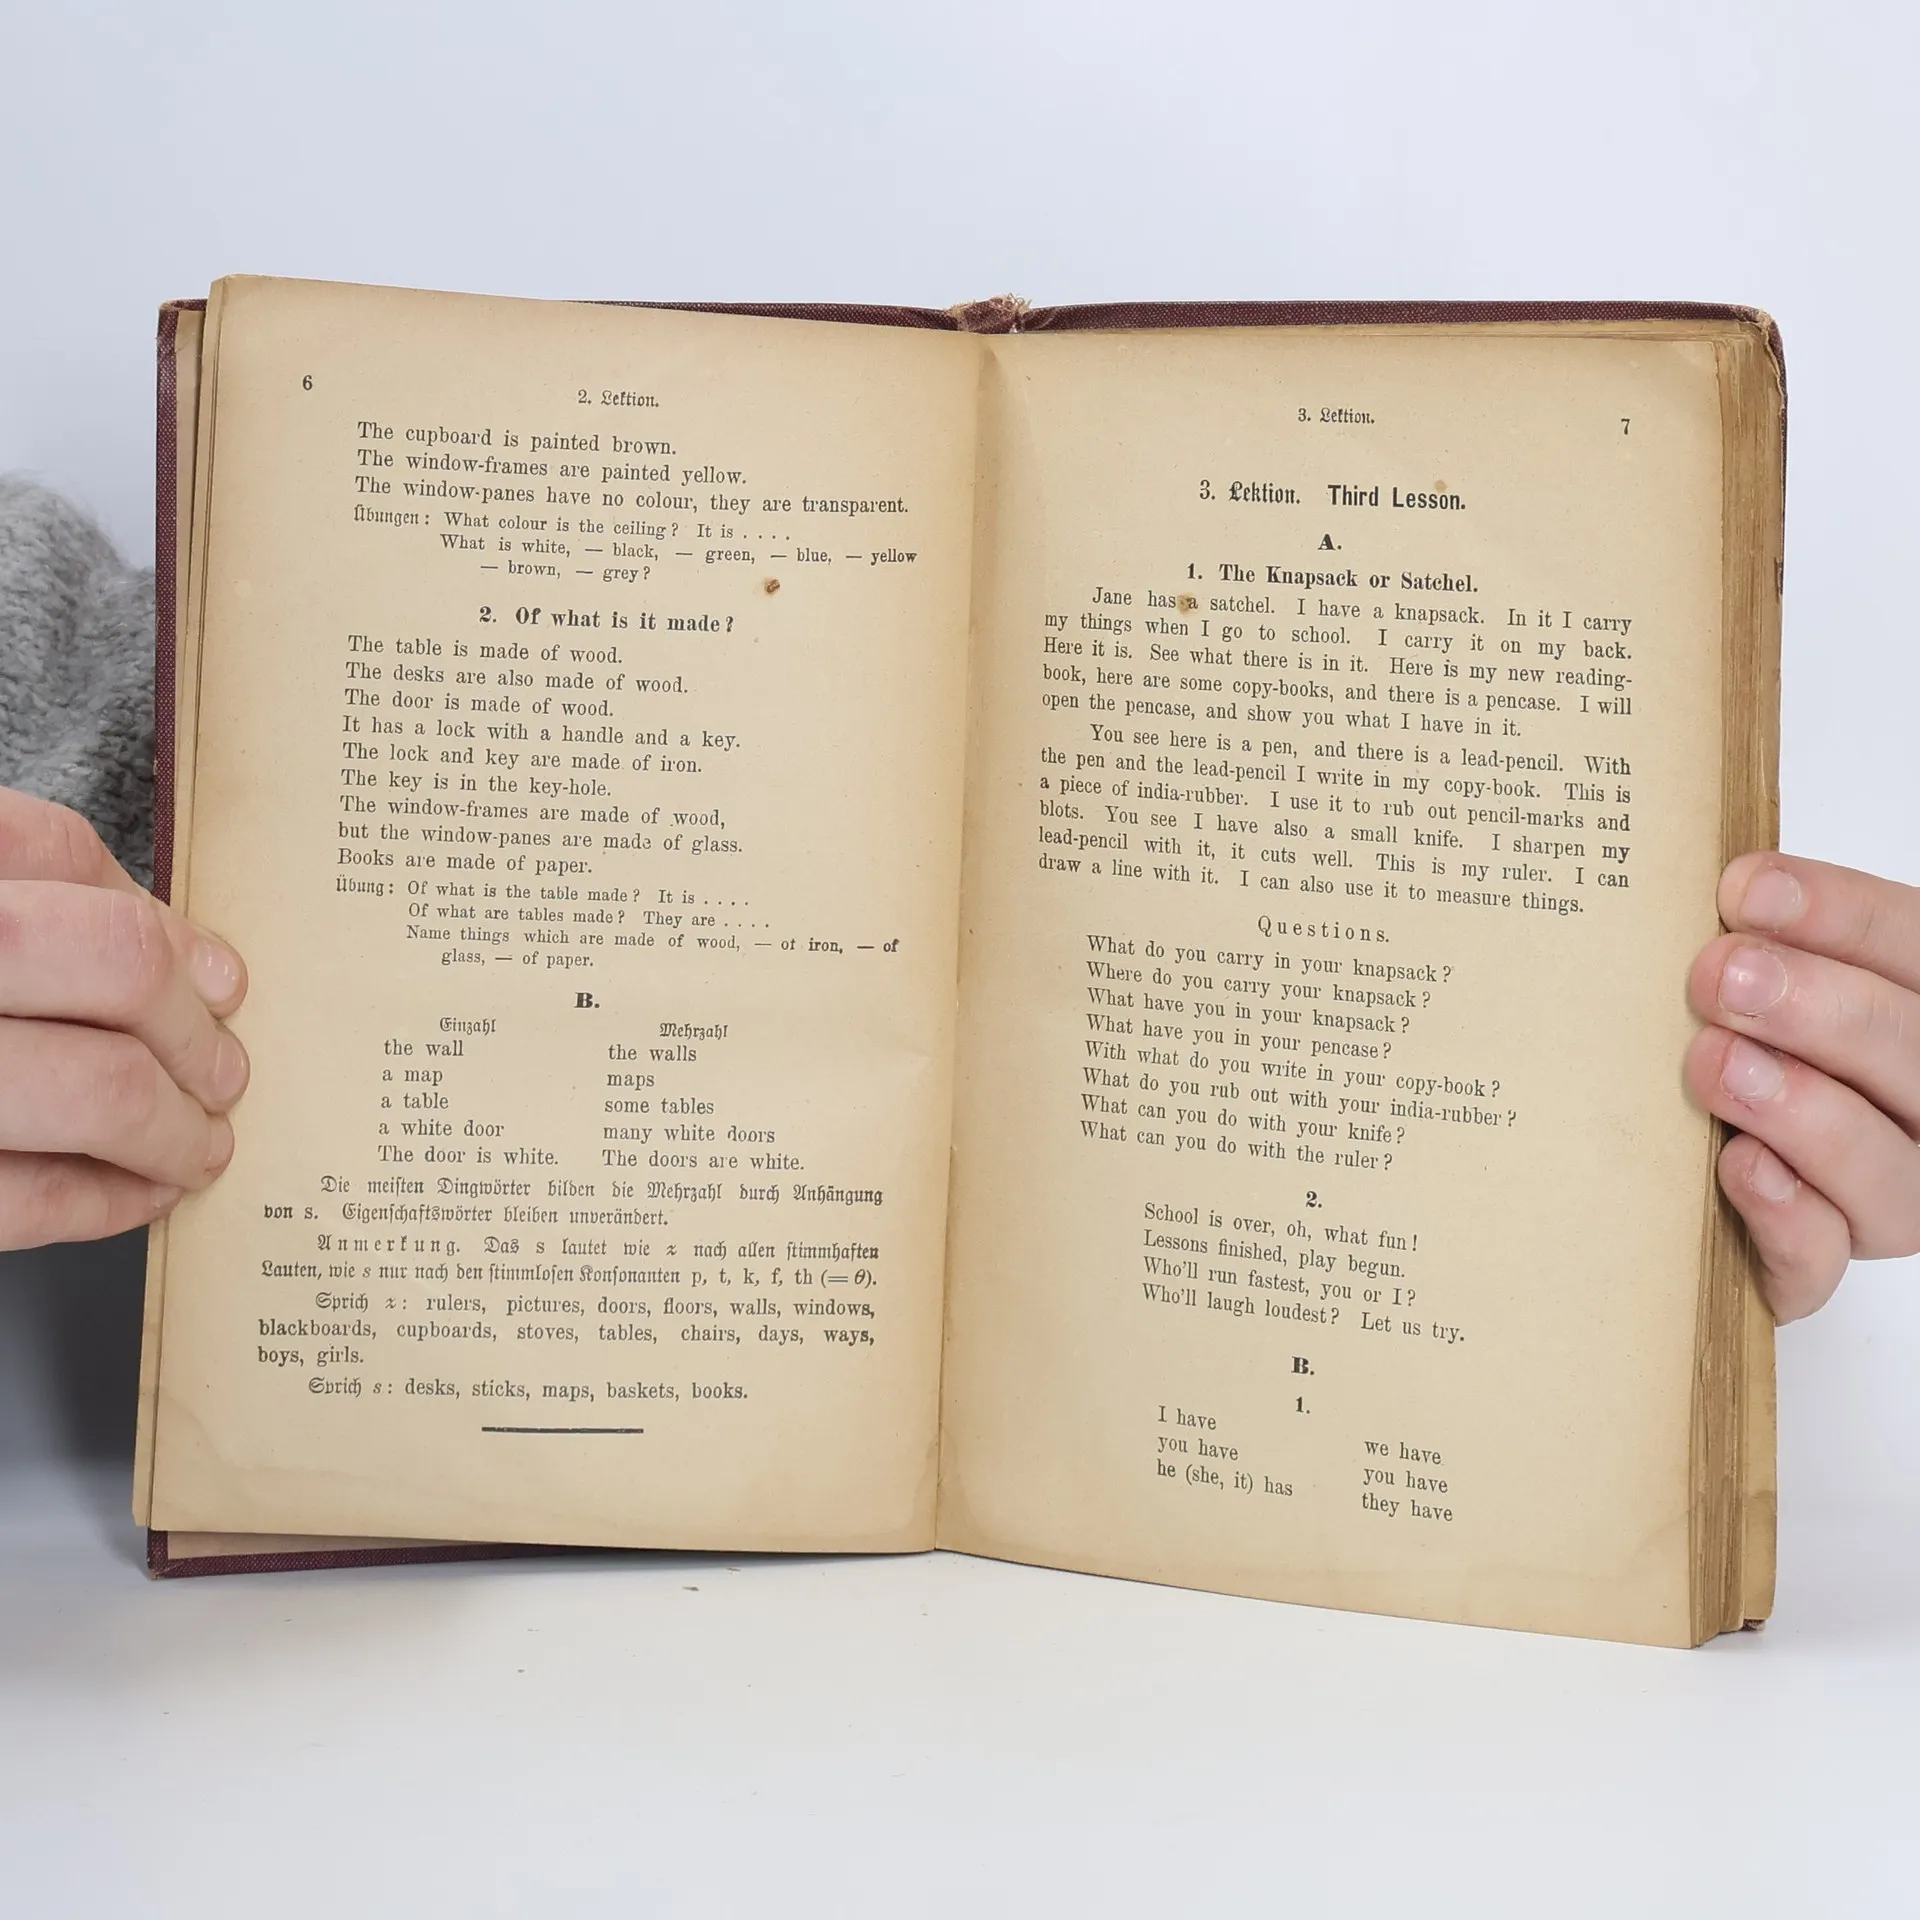 6
2. Lektion.
The cupboard is painted brown.
The window-frames are painted yellow.
The window-panes have no colour, they are transparent.
Übungen: What colour is the ceiling? It is . . . .
What is white, — black, — green, — blue, — yellow
— brown, — grey?
2. Of what is it made?
The table is made of wood.
The desks are also made of wood.
The door is made of wood.
It has a lock with a handle and a key.
The lock and key are made of iron.
The key is in the key-hole.
The window-frames are made of wood,
but the window-panes are made of glass.
Books are made of paper.
Übung: Of what is the table made? It is . . . .
Of what are tables made? They are . . . .
Name things which are made of wood, — of iron, — of
glass, — of paper.
B.
Einzahl Mehrzahl
the wall the walls
a map maps
a table some tables
a white door many white doors
The door is white. The doors are white.
Die meisten Dingwörter bilden die Mehrzahl durch Anhängung
von s. Eigenschaftswörter bleiben unverändert.
Anmerkung. Das s lautet wie z nach allen stimmhaften
Lauten, wie s nur nach den stimmlosen Konsonanten p, t, k, f, th (= θ).
Sprich z: rulers, pictures, doors, floors, walls, windows,
blackboards, cupboards, stoves, tables, chairs, days, ways,
boys, girls.
Sprich s: desks, sticks, maps, baskets, books.
3. Lektion.
7
3. Lektion. Third Lesson.
A.
1. The Knapsack or Satchel.
Jane has a satchel. I have a knapsack. In it I carry
my things when I go to school. I carry it on my back.
Here it is. See what there is in it. Here is my new reading-
book, here are some copy-books, and there is a pencase. I will
open the pencase, and show you what I have in it.
You see here is a pen, and there is a lead-pencil. With
the pen and the lead-pencil I write in my copy-book. This is
a piece of india-rubber. I use it to rub out pencil-marks and
blots. You see I have also a small knife. I sharpen my
lead-pencil with it, it cuts well. This is my ruler. I can
draw a line with it. I can also use it to measure things.
Questions.
What do you carry in your knapsack?
Where do you carry your knapsack?
What have you in your knapsack?
What have you in your pencase?
With what do you write in your copy-book?
What do you rub out with your india-rubber?
What can you do with your knife?
What can you do with the ruler?
2.
School is over, oh, what fun!
Lessons finished, play begun.
Who'll run fastest, you or I?
Who'll laugh loudest? Let us try.
B.
1.
I have we have
you have you have
he (she, it) has they have